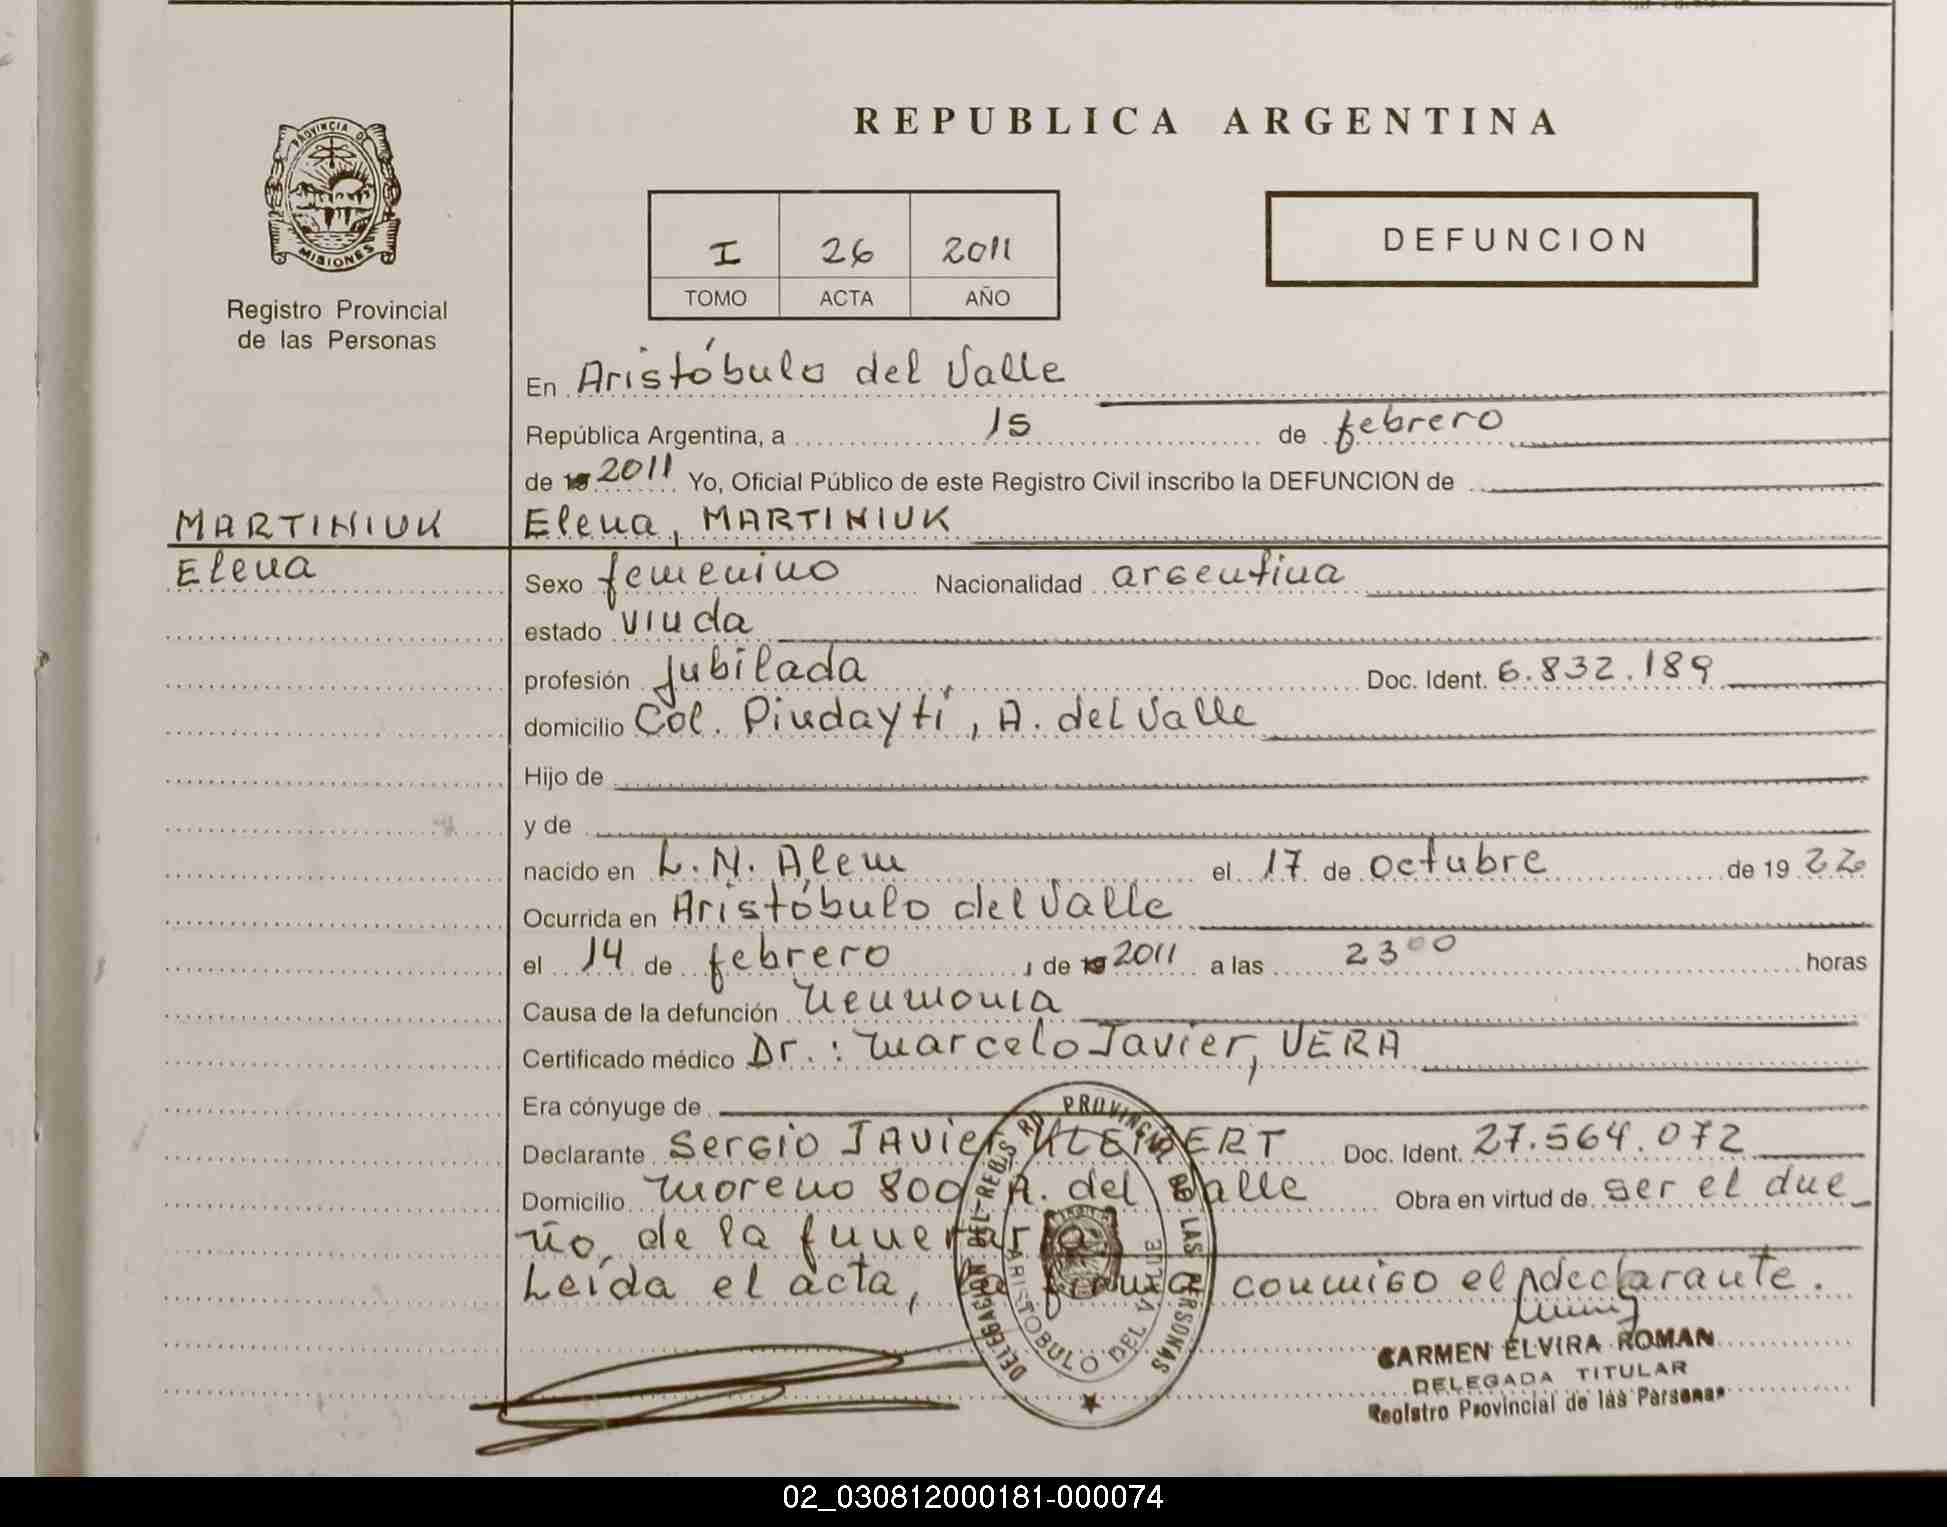 REPUBLICA ARGENTINA
PROVINCIA DE
MISIONES
Registro Provincial
de las Personas
I 26 2011
TOMO ACTA AÑO
DEFUNCION
En Aristóbulo del Valle
República Argentina, a 15 de febrero
de 19 2011 Yo, Oficial Público de este Registro Civil inscribo la DEFUNCION de
MARTINIUK Elena, MARTINIUK
Elena
Sexo femenino Nacionalidad argentina
estado viuda
profesión jubilada Doc. Ident. 6.832.189
domicilio Col. Pindaytí, A. del Valle
Hijo de
y de
nacido en L. N. Alem el 17 de octubre de 19 22
Ocurrida en Aristóbulo del Valle
el 14 de febrero, de 19 2011 a las 23 00 horas
Causa de la defunción Neumonía
Certificado médico Dr.: Marcelo Javier, VERA
Era cónyuge de
Declarante Sergio JAVier Doc. Ident. 27.564.072
Domicilio Moreno 800 A. del Valle Obra en virtud de ser el due_
ño, de la funeraria
Leída el acta, la firma conmigo el declarante.
DELEGACION DEL REGIS RO PROVINCIAL DE LAS PERSONAS
ARISTOBULO DEL VALLE
CARMEN ELVIRA ROMAN
DELEGADA TITULAR
Registro Provincial de las Personas
02_030812000181-000074